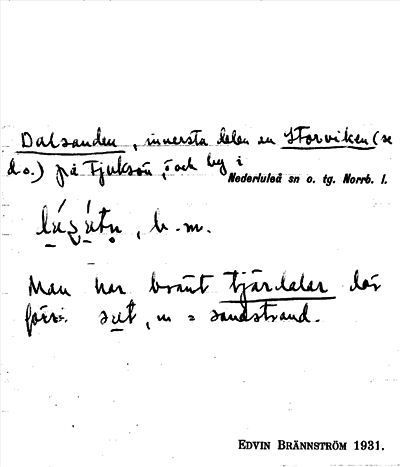 Dalsanden, innersta delen en Storviken (se
d.o.) på Tjuksön, ö och by i
Nederluleå sn o. tg. Norrb. l.
b. m.
Man har bränt tjärdalar där
förr. , m = sandstrand.
EDVIN BRÄNNSTRÖM 1931.